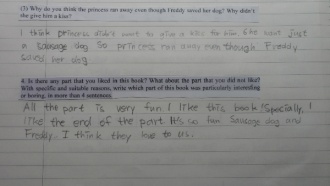 (3) Why do you think the princess ran away even though Freddy saved her dog? Why didn't
she give him a kiss?
I think princess didn't want to give a kiss to him. She want just
a sausage dog so princess run away even though Freddy
saved her dog
4. Is there any part that you liked in this book? What about the part that you did not like?
With specific and suitable reasons, write which part of this book was particularly interesting
or boring, in more than 4 sentences.
All the part is very fun. I like this book! Specially, I
like the end of the part It's so fun Sausage dog and
Freddy. I think they to us.